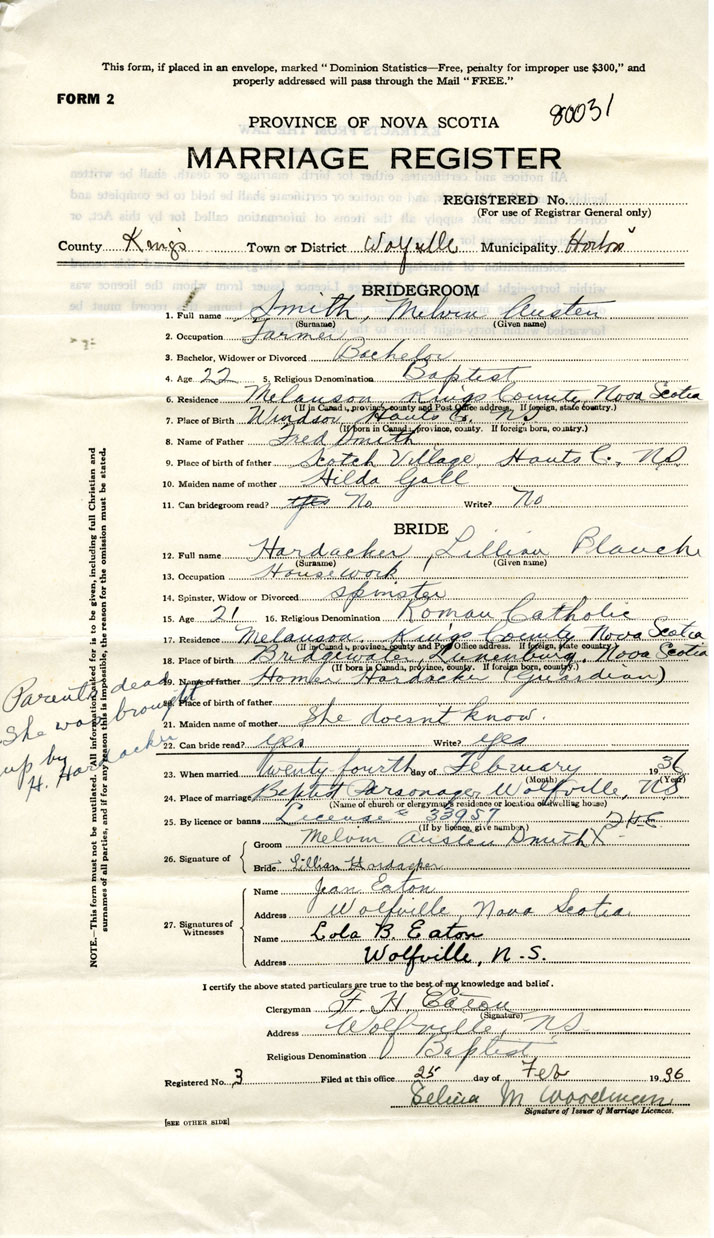 This form, if placed in an envelope, marked "Dominion Statistics—Free, penalty for improper use $300," and
properly addressed will pass through the Mail "FREE."
FORM 2
80031
PROVINCE OF NOVA SCOTIA
MARRIAGE REGISTER
REGISTERED No.
(For use of Registrar General only)
County Kings Town or District Wolfville Municipality Horton
BRIDEGROOM
1. Full name Smith, Melvin Austen
(Surname) (Given name)
2. Occupation Farmer
3. Bachelor, Widower or Divorced Bachelor
4. Age 22 5. Religious Denomination Baptist
6. Residence Melanson Kings County, Nova Scotia
(If in Canada, province, county and Post Office address. If foreign, state country.)
7. Place of Birth Windsor Hants C. N.S.
(If born in Canada, province, county. If foreign born, country.)
8. Name of Father Fred Smith
9. Place of birth of father Scotch Village, Hants C., N.S.
10. Maiden name of mother Hilda Gall
11. Can bridegroom read? yes No Write? No
BRIDE
12. Full name Hardacker, Lillian Blanche
(Surname) (Given name)
13. Occupation Housework
14. Spinster, Widow or Divorced spinster
15. Age 21 16. Religious Denomination Roman Catholic
17. Residence Melanson, Kings County Nova Scotia
(If in Canada, province, county and Post Office address. If foreign, state country)
18. Place of birth Bridgewater, Lunenburg, Nova Scotia
(If born in Canada, province, county. If foreign born, country.)
19. Name of father Homer Hardacker (Guardian)
20. Place of birth of father
21. Maiden name of mother She doesnt know.
22. Can bride read? yes Write? yes
Parents dead
She was brought
up by
H. Hardacker
NOTE.—This form must not be mutilated. All information asked for is to be given, including full Christian and
surnames of all parties, and if for any reason this is impossible, the reason for the omission must be stated.
23. When married Twenty fourth day of February 1936
(Month) (Year)
24. Place of marriage Baptist Parsonage Wolfville, N.S.
(Name of church or clergyman's residence or location of dwelling house)
25. By licence or banns License # 33957
(If by licence, give number)
26. Signature of
Groom Melvin Austen Smith X
Bride Lillian Hardacker
27. Signatures of Witnesses
Name Jean Eaton
Address Wolfville Nova Scotia
Name Lola B. Eaton
Address Wolfville, N.S.
I certify the above stated particulars are true to the best of my knowledge and belief.
Clergyman F. H. Eaton
(Signature)
Address Wolfville, N.S.
Religious Denomination Baptist
Registered No. 3 Filed at this office 25 day of Feb 1936
Selina M Woodman
Signature of Issuer of Marriage Licences.
[SEE OTHER SIDE]